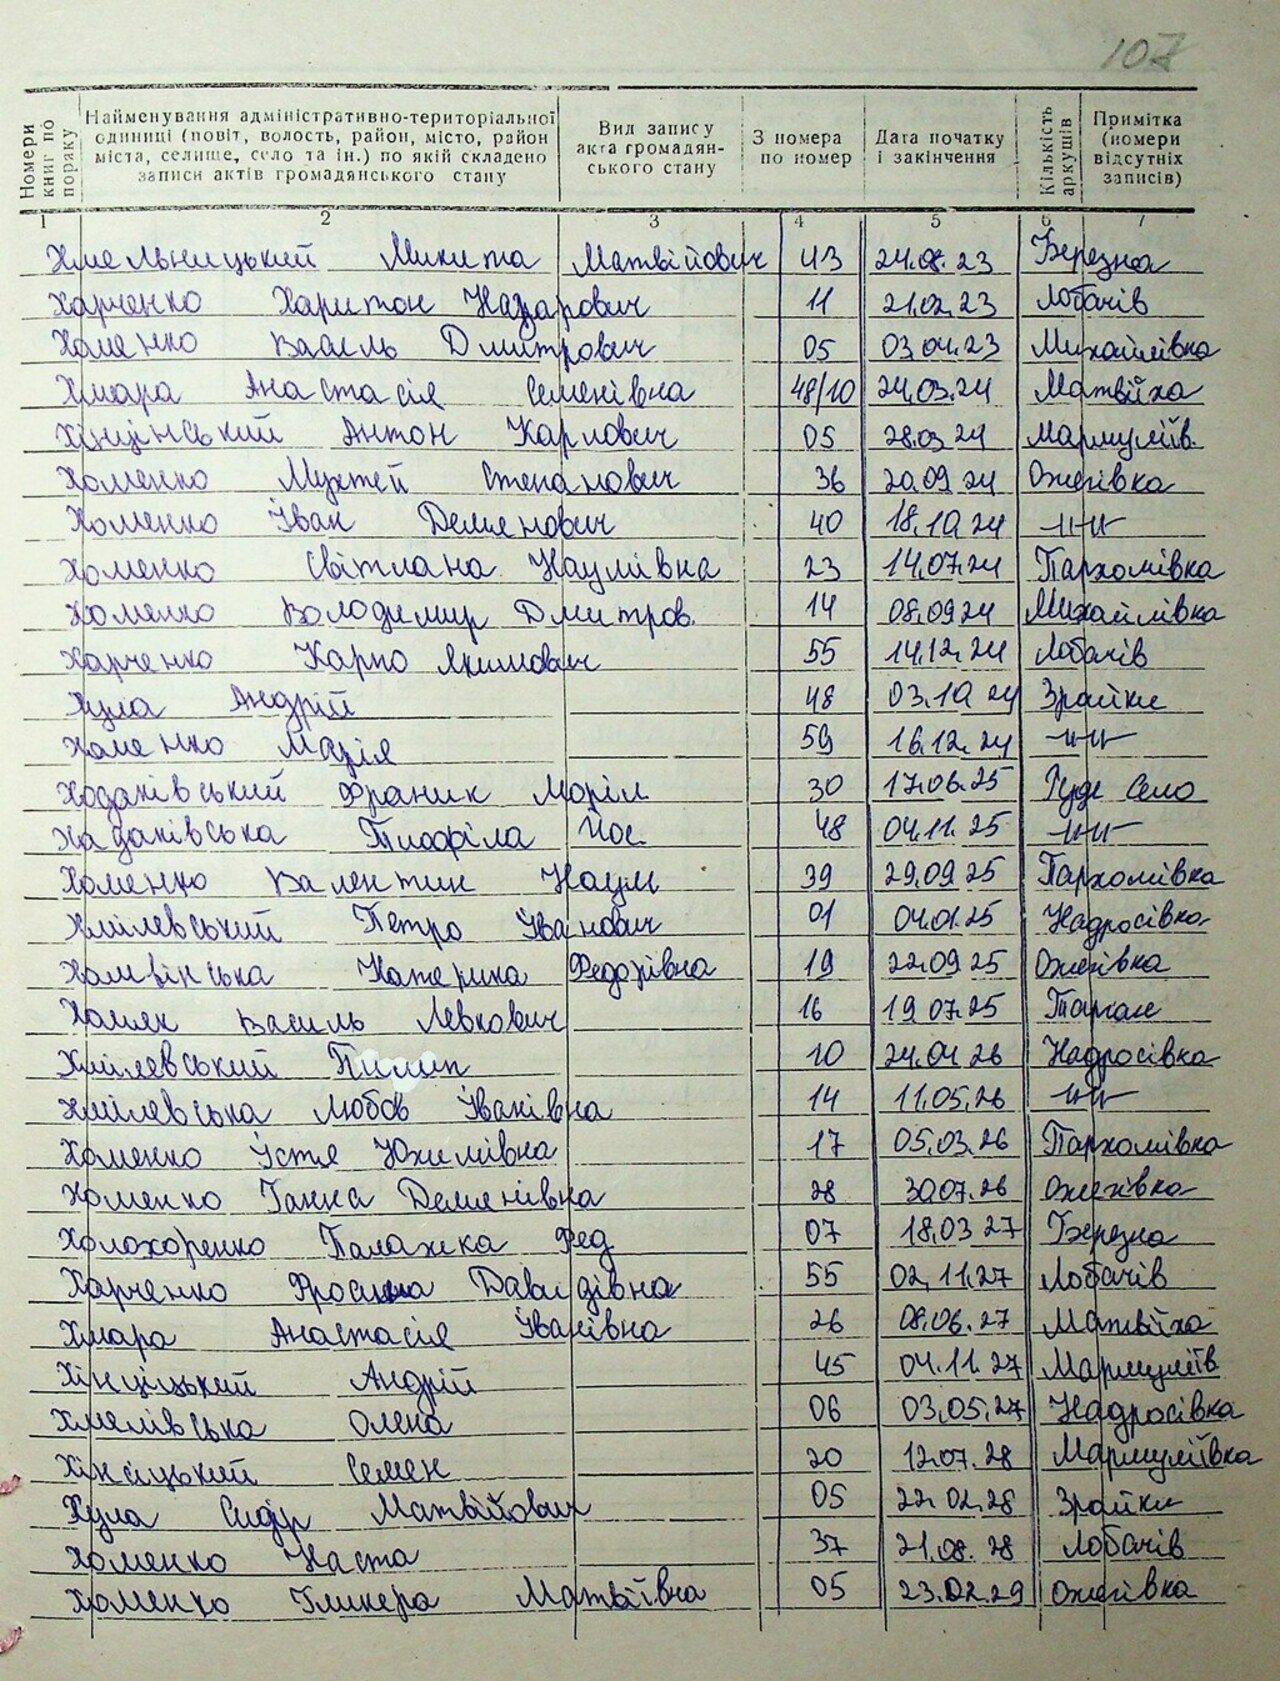 107
Номери книг по поряку
Найменування адміністративно-територіальної одиниці (повіт, волость, район, місто, район міста, селище, село та ін.) по якій складено записи актів громадянського стану
Вил запису акта громадян-ського стану
З номера по номер
Дата початку і закінчення
Кількість аркушів
Примітка (номери відсутніх записів)
1 2 3 4 5 6 7
Хмельницький Микита Матвійович 43 24.08.23 Березна
Харченко Харитон Назарович 11 21.02.23 Лобачів
Хоменко Василь Дмитрович 05 03.04.23 Михайлівка
Хмара Анастасія Семенівна 48/10 24.03.24 Матвіїха
Хінцінський Антон Карлович 05 28.03.24 Мармуліїв.
Хоменко Мухтей Степанович 36 20.09.24 Ожегівка
Хоменко Іван Деменович 40 18.10.24 -//-
Хоменко Світлана Наумівна 23 14.07.24 Пархомівка
Хоменко Володимир Дмитров. 14 08.09.24 Михайлівка
Харченко Карпо Якимович 55 14.12.24 Лобачів
Хула Андрій 48 03.10.24 Зрайки
Хоменко Марія 59 16.12.24 -//-
Ходаківський Франик Моріл 30 17.06.25 Руде Село
Хадаківська Тиофіла Йос. 48 04.11.25 -//-
Хоменко Валентин Наум 39 29.09.25 Пархомівка
Хмілевський Петро Іванович 01 04.01.25 Надросівка
Катерина Федорівна 19 22.09.25 Ожегівка
Хомяк Василь Левкович 16 19.07.25 Таган
Хмілевський Пилип 10 24.04.26 Надросівка
Хмілевська Любов Іванівна 14 11.05.26 -//-
Хоменко Устя Юхимівна 17 05.03.26 Пархомівка
Хоменко Ганна Деменівна 28 30.07.26 Ожегівка
Холохоренко Палажка Фед 07 18.03.27 Березна
Харченко Фросина Давидівна 55 02.11.27 Лобачів
Хмара Анастасія Іванівна 26 08.06.27 Матвіїха
Хінціцький Андрій 45 04.11.27 Мармуліїв
Хмелівська Олена 06 03.05.27 Надросівка
Хінсіцький Семен 20 12.07.28 Мармуліївка
Хула Сидір Матвійович 05 22.02.28 Зрайки
Хоменко Наста 37 21.08.28 Лобачів
Хоменко Гликера Матвіївна 05 23.02.29 Ожегівка